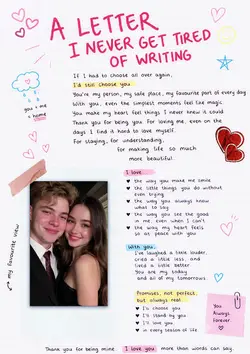 A LETTER
I NEVER GET TIRED
OF WRITING
If I had to choose all over again,
I'd still choose you.
You're my person, my safe place, my favourite part of every day
With you, even the simplest moments feel like magic.
You make my heart feel things I never knew it could
Thank you for being you, for loving me, even on the
days I find it hard to love myself.
For staying, for understanding,
for making life so much
more beautiful.
you + me
= home
I love...
♥ the way you make me smile
♥ the little things you do without
even trying
♥ the way you always know
what to say
♥ the way you see the good
in me, even when I can't
♥ the way my heart feels
so at peace with you
my favourite view
With you,
I've laughed a little louder,
cried a little less, and
lived a little better.
You are my today
and all of my tomorrows.
Promises, not perfect,
but always real
♥ I'll choose you
♥ I'll stand by you
♥ I'll love you
♥ in every season of life
You
Always
Forever
Thank you for being mine. I love you more than words can say